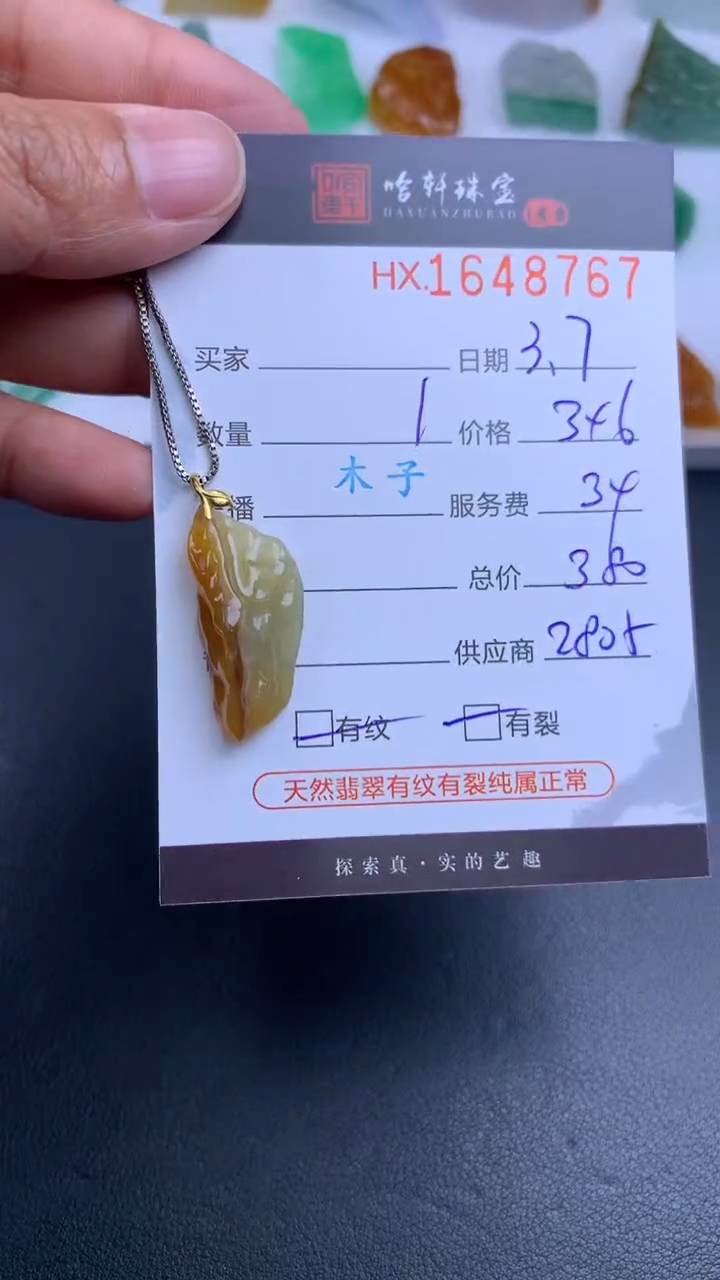 哈轩珠宝
HAXUANZHUBAO
HX.1648767
买家 日期 3.7
数量 1 价格 346
播 木子 服务费 34
总价 380
供应商 2805
有纹 有裂
天然翡翠有纹有裂纯属正常
探索真·实的艺趣